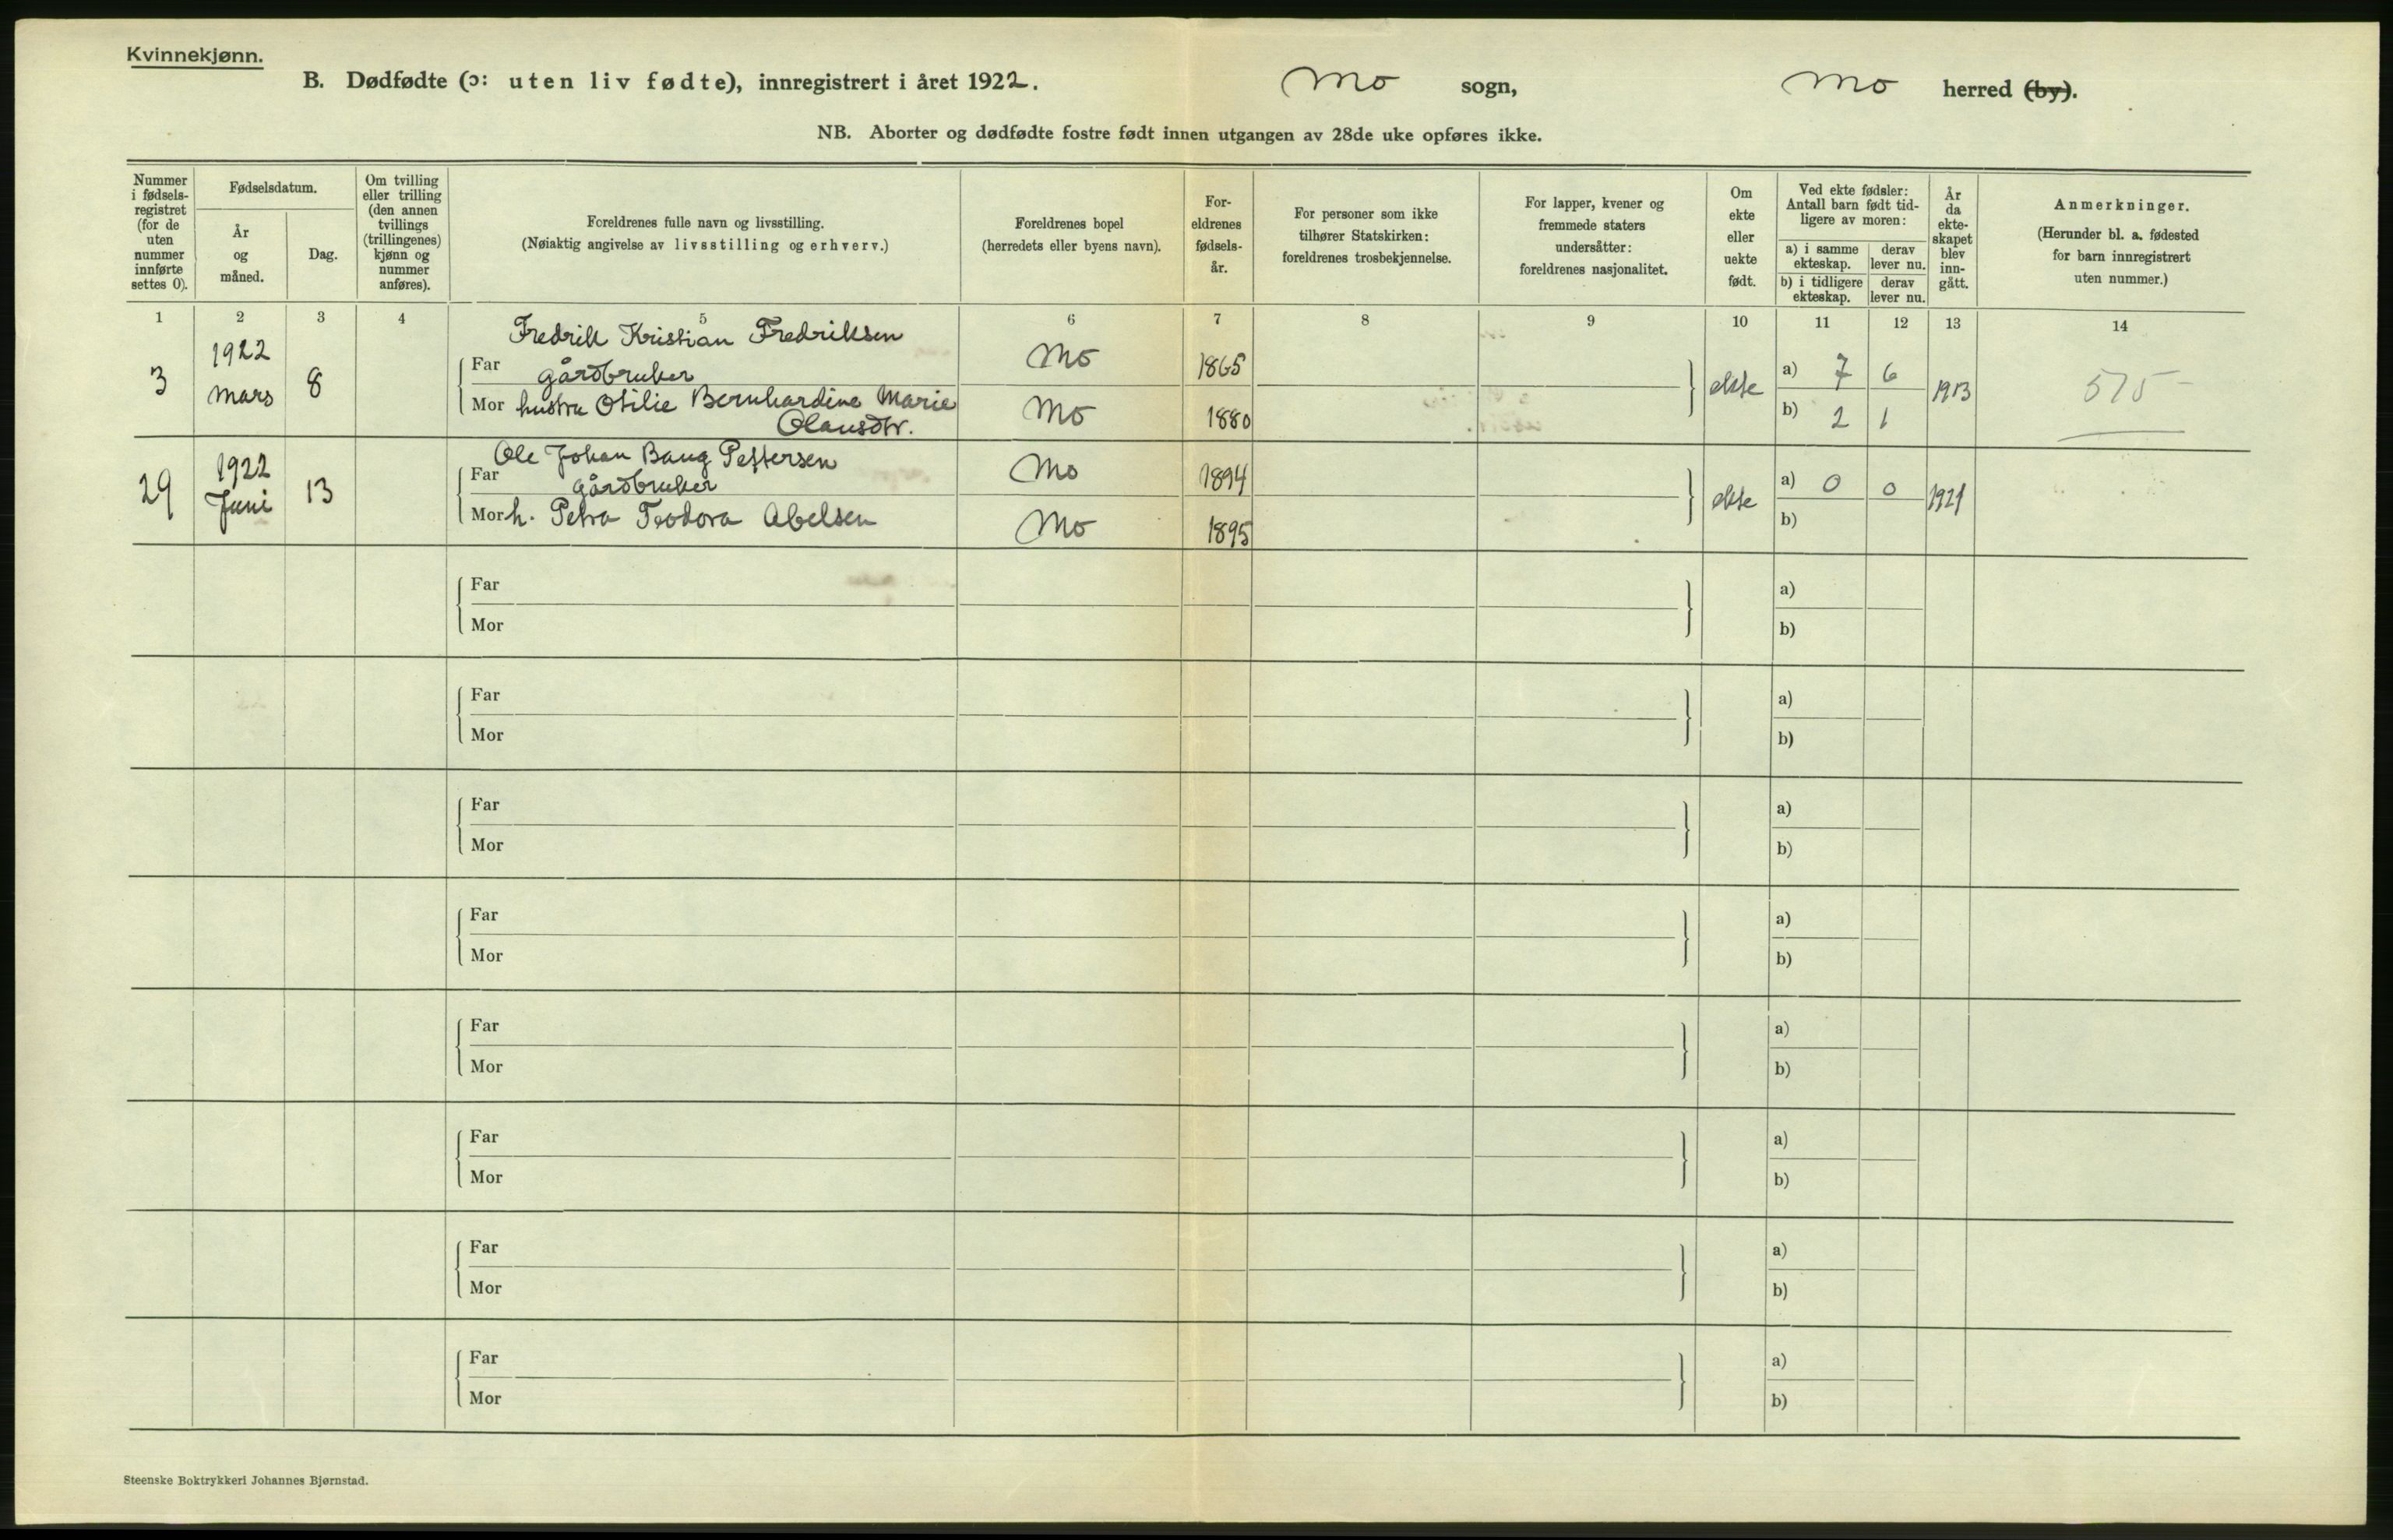 Kvinnekjønn.
B. Dødfødte (ɔ: uten liv fødte), innregistrert i året 1922. Mo sogn, Mo herred (by).
NB. Aborter og dødfødte fostre født innen utgangen av 28de uke opføres ikke.
Nummer i fødsels-registret (for de uten nummer innførte settes 0).
Fødselsdatum.
År og måned.
Dag.
Om tvilling eller trilling (den annen tvillings (trillingenes) kjønn og nummer anføres).
Foreldrenes fulle navn og livsstilling.
(Nøiaktig angivelse av livsstilling og erhverv.)
Foreldrenes bopel
(herredets eller byens navn).
For-eldrenes fødsels-år.
For personer som ikke tilhører Statskirken: foreldrenes trosbekjennelse.
For lapper, kvener og fremmede staters undersåtter: foreldrenes nasjonalitet.
Om ekte eller uekte født.
Ved ekte fødsler: Antall barn født tid-ligere av moren:
a) i samme ekteskap.
derav lever nu.
b) i tidligere ekteskap.
derav lever nu.
År da ekte-skapet blev inn-gått.
Anmerkninger.
(Herunder bl. a. fødested for barn innregistrert uten nummer.)
1 2 3 4 5 6 7 8 9 10 11 12 13 14
Fredrik Kristian Fredriksen
3 1922 mars 8 Far gårdbruker Mo 1865 ekte a) 7 6 1913 575 -
Mor hustru Otilie Bernhardine Marie Mo 1880 b) 2 1
Olausdtr.
Ole Johan Baug Pettersen
29 1922 Juni 13 Far gårdbruker Mo 1894 ekte a) 0 0 1921
Mor h. Petra Teodora Abelsen Mo 1895 b)
Far a)
Mor b)
Far a)
Mor b)
Far a)
Mor b)
Far a)
Mor b)
Far a)
Mor b)
Far a)
Mor b)
Far a)
Mor b)
Far a)
Mor b)
Steenske Boktrykkeri Johannes Bjørnstad.